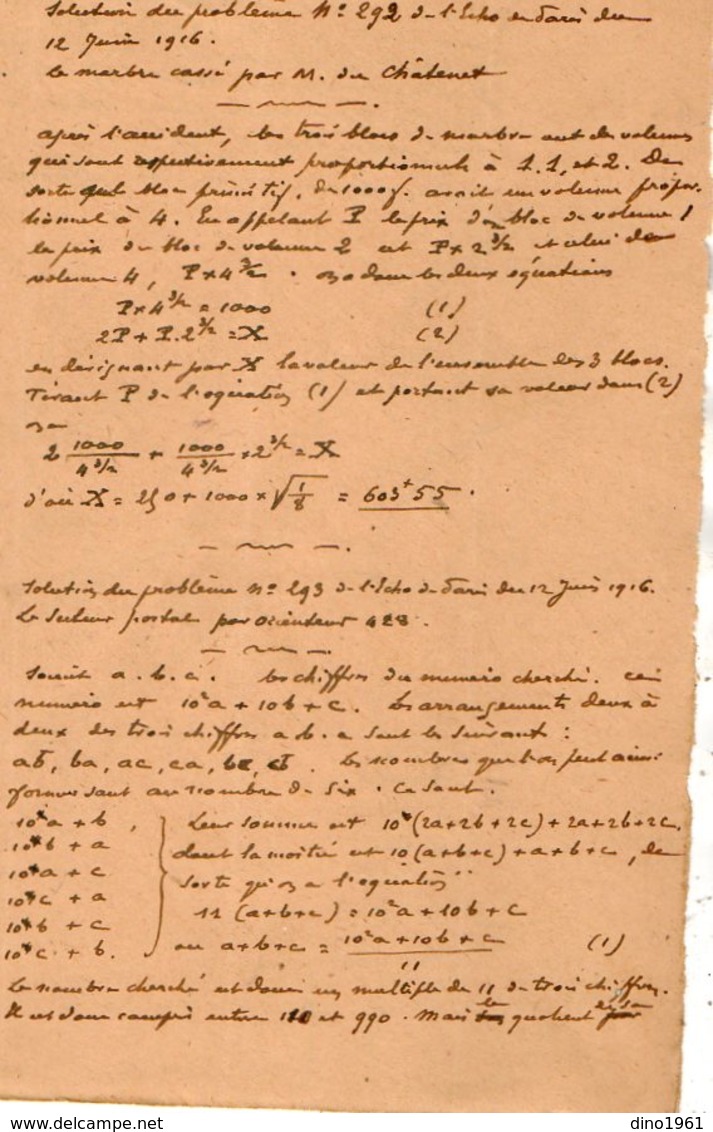 Solution du problème N° 292 de l'Echo de Paris du
12 Juin 1916.
Le marbre cassé par M. du Châtenet
après l'accident, les trois blocs de marbre ont des volumes
qui sont respectivement proportionnels à 1. 1, et 2. De
sorte que le bloc primitif, de 1000 f. avait un volume propor-
tionnel à 4. En appelant P le prix d'un bloc de volume 1
le prix du bloc de volume 2 est P×2^3/2 et celui de
volume 4, P×4^3/2. on a donc les deux équations
P×4^3/2 = 1000 (1)
2P + P.2^3/2 = X (2)
en désignant par X la valeur de l'ensemble des 3 blocs.
Tirant P de l'équation (1) et portant sa valeur dans (2)
on a
2 1000/4^3/2 + 1000/4^3/2 × 2^3/2 = X
d'où X = 250 + 1000 × √1/8 = 603f 55.
Solution du problème n° 293 de l'Echo de Paris du 12 Juin 1916.
Le Secteur postal par Orienteur 428.
Soient a. b. c. les chiffres du numéro cherché. ce
numéro est 10²a + 10b + c. Les arrangements deux à
deux des trois chiffres a. b. c sont les suivants :
ab, ba, ac, ca, bc, cb. Les nombres que l'on peut ainsi
former sont au nombre de six. Ce sont.
10a + b, Leur somme est 10(2a+2b+2c)+2a+2b+2c,
10b + a dont la moitié est 10(a+b+c)+a+b+c, de
10a + c sorte qu'on a l'équation
10c + a 11 (a+b+c) = 10²a+10b+c
10b + c ou a+b+c = 10²a+10b+c/11 (1)
10c + b.
Le nombre cherché est donc un multiple de 11 de trois chiffres.
Il est donc compris entre 110 et 990. Mais le quotient de sa
dino1961